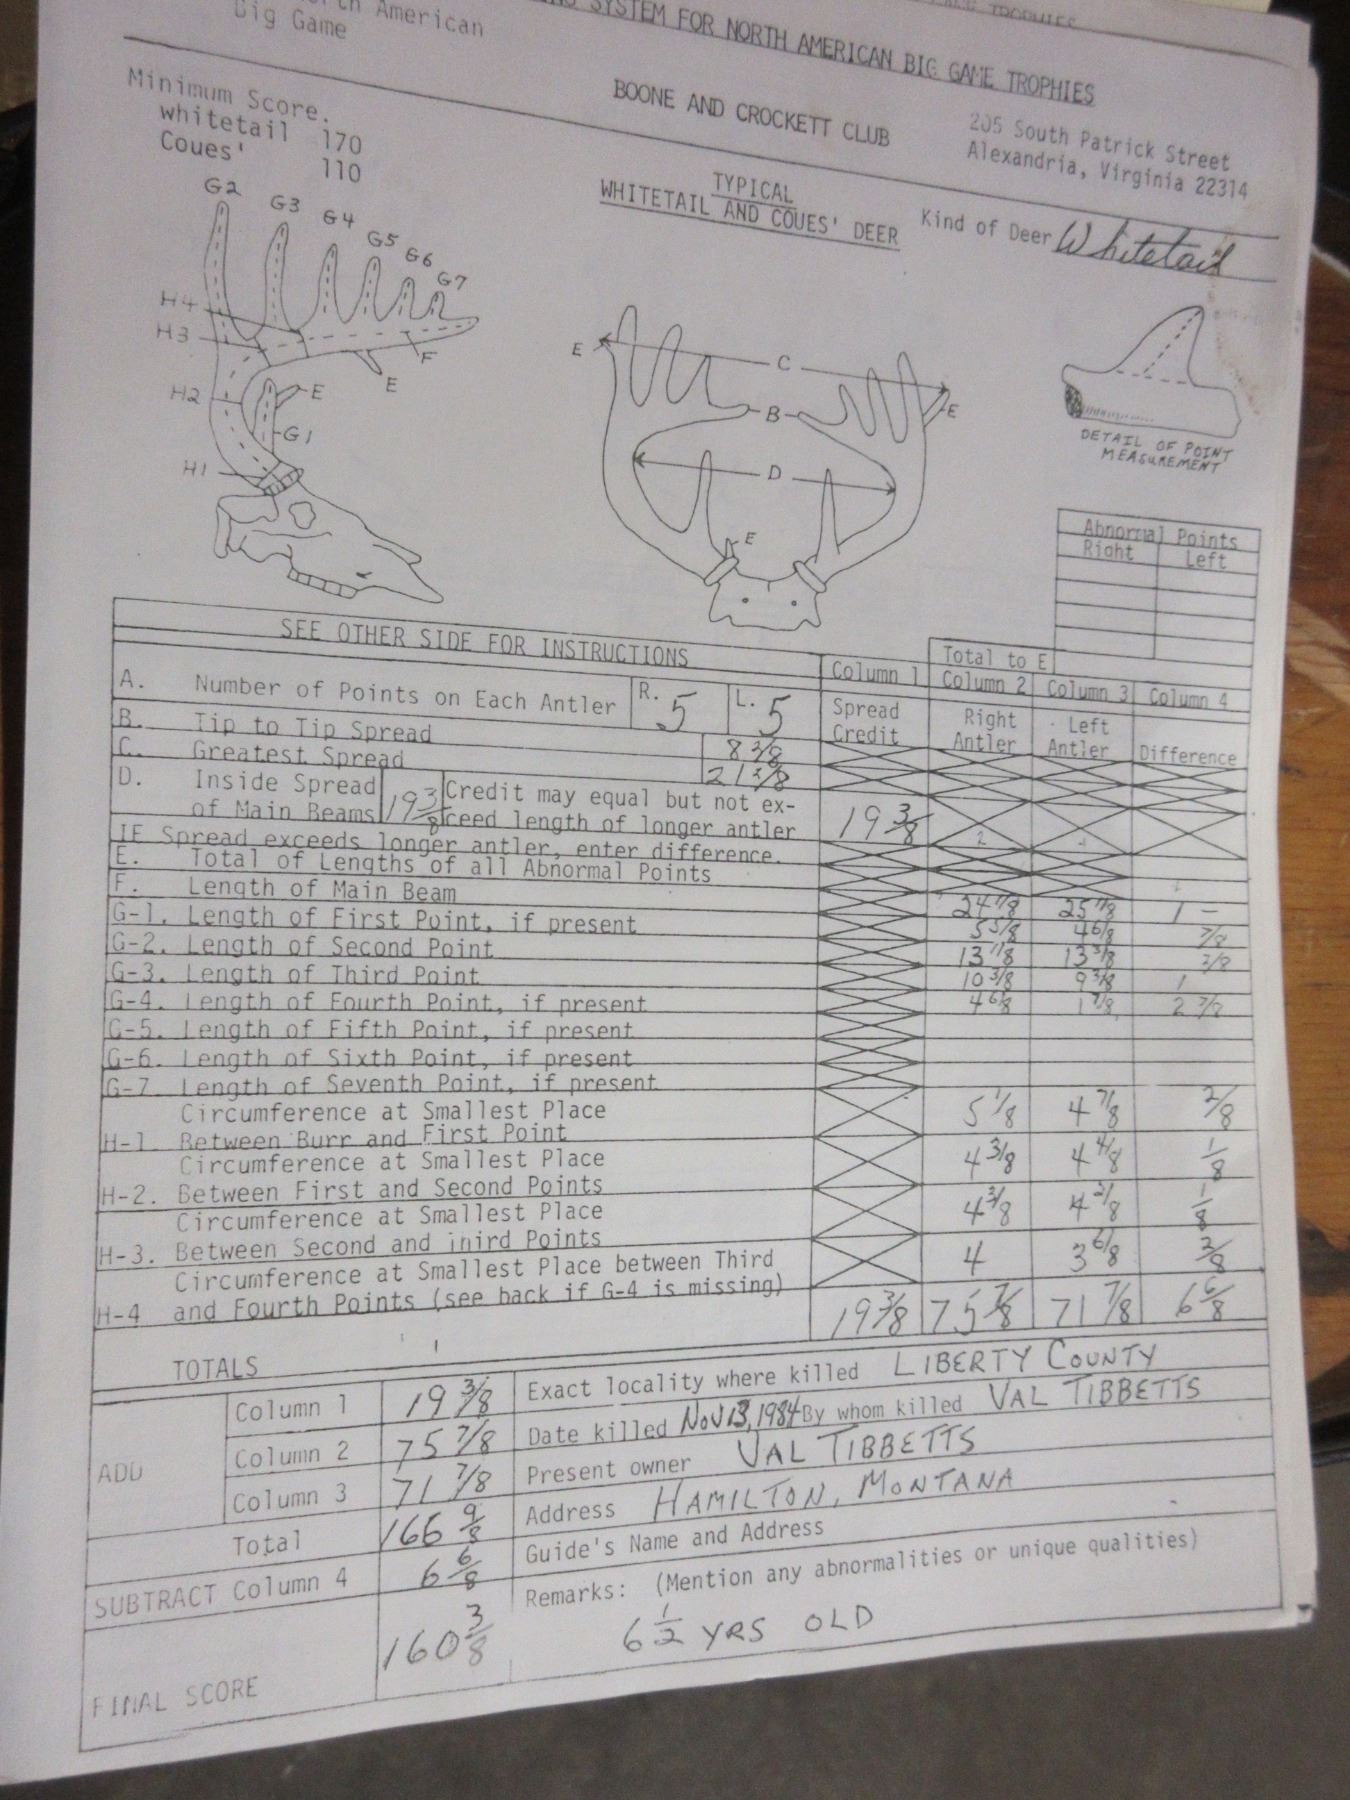 TROPHIES
SYSTEM FOR NORTH AMERICAN BIG GAME TROPHIES
American
Big Game
BOONE AND CROCKETT CLUB
205 South Patrick Street
Alexandria, Virginia 22314
Minimum Score.
whitetail 170
Coues' 110
TYPICAL
WHITETAIL AND COUES' DEER
Kind of Deer Whitetail
G2 G3 G4 G5 G6 G7
H4
H3
F
H2 E E
G1
H1
E C
B E
D
E
DETAIL OF POINT
MEASUREMENT
Abnormal Points
Right Left
SEE OTHER SIDE FOR INSTRUCTIONS
Total to E
Column 1 Column 2 Column 3 Column 4
A. Number of Points on Each Antler R. 5 L. 5
Spread Credit Right Antler Left Antler Difference
B. Tip to Tip Spread 8 3/8
C. Greatest Spread 21 3/8
D. Inside Spread of Main Beams 19 3/8 Credit may equal but not ex-
ceed length of longer antler 19 3/8
IF Spread exceeds longer antler, enter difference.
E. Total of Lengths of all Abnormal Points
F. Length of Main Beam 24 7/8 25 7/8 1 -
G-1. Length of First Point, if present 5 5/8 4 6/8 7/8
G-2. Length of Second Point 13 1/8 13 3/8 2/8
G-3. Length of Third Point 10 3/8 9 3/8 1
G-4. Length of Fourth Point, if present 4 6/8 1 7/8 2 7/8
G-5. Length of Fifth Point, if present
G-6. Length of Sixth Point, if present
G-7. Length of Seventh Point, if present
Circumference at Smallest Place
H-1. Between Burr and First Point 5 1/8 4 7/8 2/8
Circumference at Smallest Place
H-2. Between First and Second Points 4 3/8 4 4/8 1/8
Circumference at Smallest Place
H-3. Between Second and Third Points 4 3/8 4 2/8 1/8
Circumference at Smallest Place between Third
H-4 and Fourth Points (see back if G-4 is missing) 4 3 6/8 2/8
TOTALS 19 3/8 75 7/8 71 7/8 6 6/8
ADD
Column 1 19 3/8
Column 2 75 7/8
Column 3 71 7/8
Total 165 9/8
SUBTRACT Column 4 6 6/8
FINAL SCORE 160 3/8
Exact locality where killed LIBERTY COUNTY
Date killed Nov 13, 1984 By whom killed VAL TIBBETTS
Present owner VAL TIBBETTS
Address HAMILTON, MONTANA
Guide's Name and Address
Remarks: (Mention any abnormalities or unique qualities)
6 1/2 YRS OLD